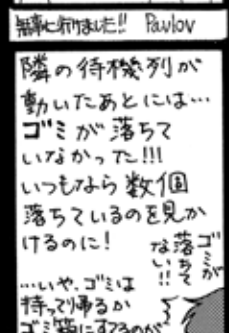 無事に行けました!! Pavlov
隣の待機列が
動いたあとには…
ゴミが落ちて
いなかった!!!
いつもなら数個
落ちているのを見か
けるのに!
ゴミが
落ちて
ない!!
…いや、ゴミは
持って帰るか
ゴミ箱にすてるのが